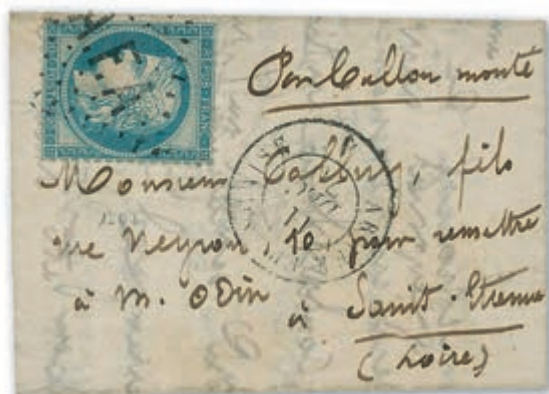 Par Ballon monté
Monsieur fils
rue Neyron, 10, pour remettre
à M. Odin
à Saint-Etienne
(Loire)